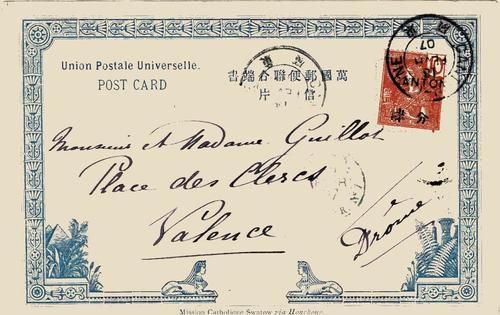 Union Postale Universelle.
POST CARD
萬國郵便聯合端書
信片
CANTON
07
Monsieur et Madame Guillot
Place des Clercs
Valence
Drôme
Mission Catholique Swatow via Hongkong